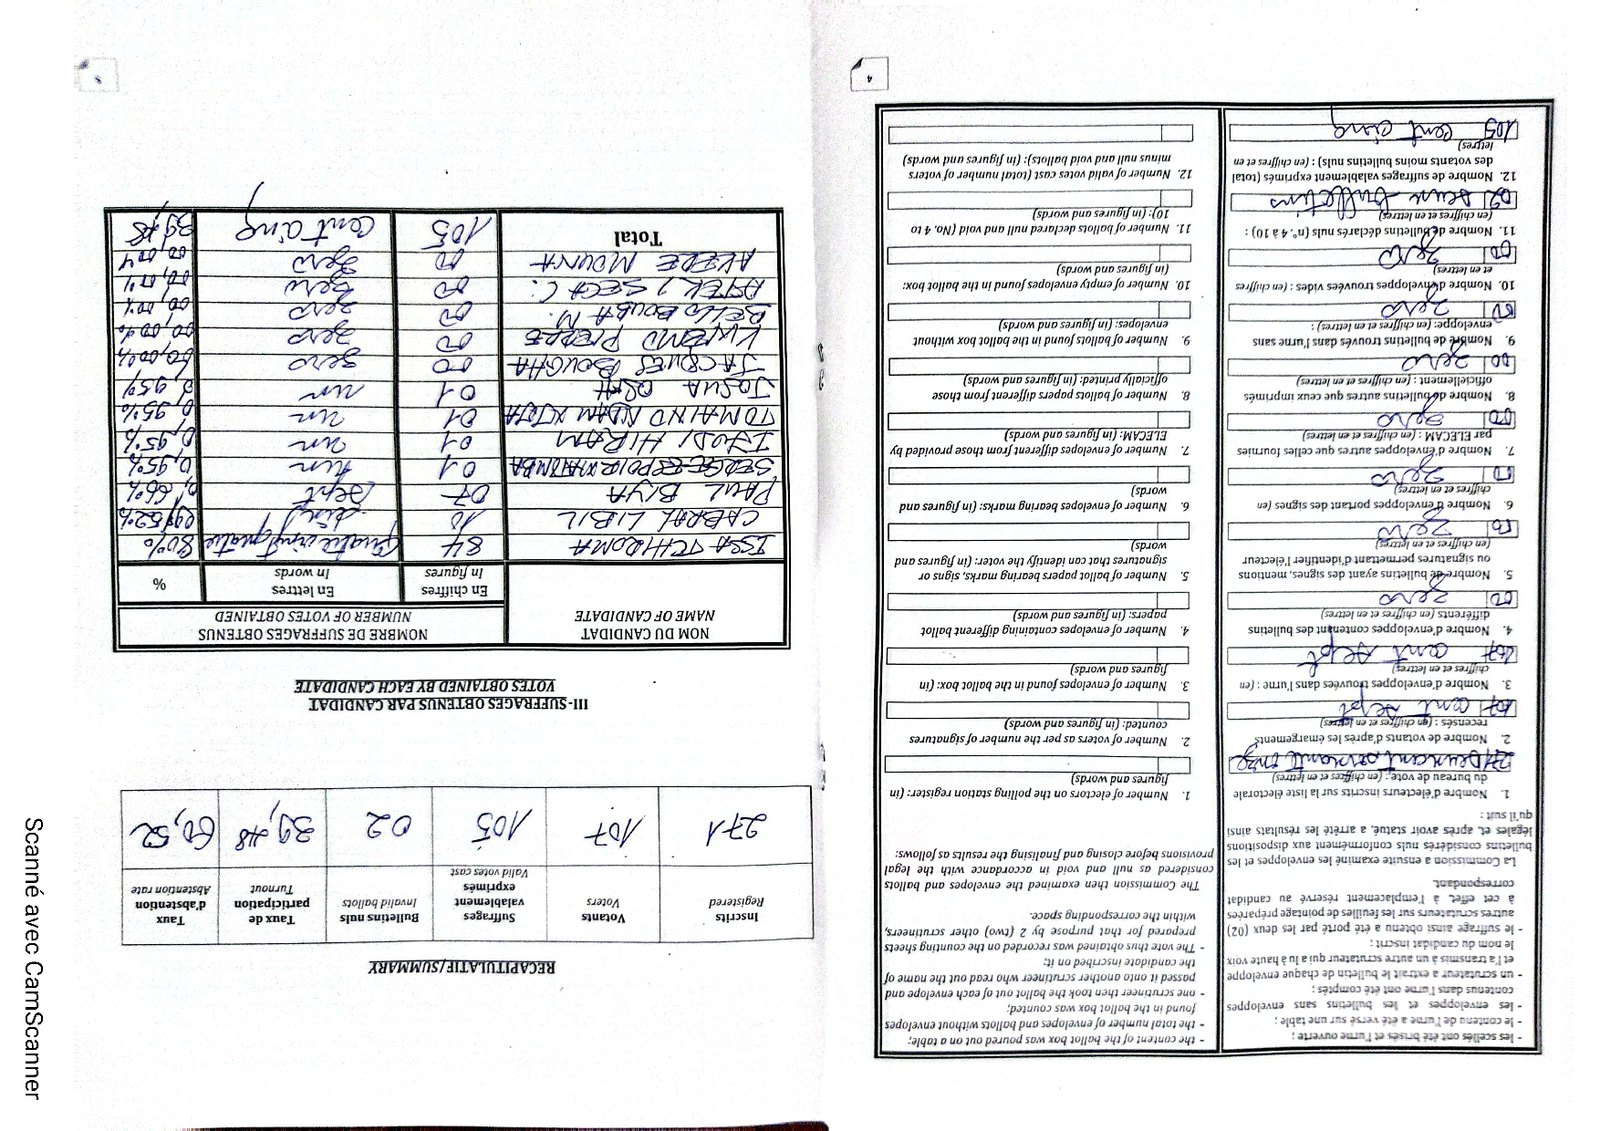 4
- les scellés ont été brisés et l'urne ouverte ;
- le contenu de l'urne a été versé sur une table ;
- les enveloppes et les bulletins sans enveloppes
contenus dans l'urne ont été comptés ;
- un scrutateur a extrait le bulletin de chaque enveloppe
et l'a transmis à un autre scrutateur qui a lu à haute voix
le nom du candidat inscrit ;
- le suffrage ainsi obtenu a été porté par les deux (02)
autres scrutateurs sur les feuilles de pointage préparées
à cet effet, à l'emplacement réservé au candidat
correspondant.
La Commission a ensuite examiné les enveloppes et les
bulletins considérés nuls conformément aux dispositions
légales et, après avoir statué, a arrêté les résultats ainsi
qu'il suit :
1. Nombre d'électeurs inscrits sur la liste électorale
du bureau de vote : (en chiffres et en lettres)
271 Deux cent soixante onze
2. Nombre de votants d'après les émargements
recensés : (en chiffres et en lettres)
107 cent sept
3. Nombre d'enveloppes trouvées dans l'urne : (en
chiffres et en lettres)
107 cent sept
4. Nombre d'enveloppes contenant des bulletins
différents (en chiffres et en lettres)
00 zero
5. Nombre de bulletins ayant des signes, mentions
ou signatures permettant d'identifier l'électeur
(en chiffres et en lettres)
00 zero
6. Nombre d'enveloppes portant des signes (en
chiffres et en lettres)
00 zero
7. Nombre d'enveloppes autres que celles fournies
par ELECAM : (en chiffres et en lettres)
00 zero
8. Nombre de bulletins autres que ceux imprimés
officiellement : (en chiffres et en lettres)
00 zero
9. Nombre de bulletins trouvés dans l'urne sans
enveloppe: (en chiffres et en lettres) :
00 zero
10. Nombre d'enveloppes trouvées vides : (en chiffres
et en lettres)
00 zero
11. Nombre de bulletins déclarés nuls (n°. 4 à 10) :
(en chiffres et en lettres)
02 deux bulletins
12. Nombre de suffrages valablement exprimés (total
des votants moins bulletins nuls) : (en chiffres et en
lettres)
105 Cent cinq
- the content of the ballot box was poured out on a table;
- the total number of envelopes and ballots without envelopes
found in the ballot box was counted;
- one scrutineer then took the ballot out of each envelope and
passed it onto another scrutineer who read out the name of
the candidate inscribed on it;
- The vote thus obtained was recorded on the counting sheets
prepared for that purpose by 2 (two) other scrutineers,
within the corresponding space.
The Commission then examined the envelopes and ballots
considered as null and void in accordance with the legal
provisions before closing and finalising the results as follows:
1. Number of electors on the polling station register: (in
figures and words)
2. Number of voters as per the number of signatures
counted: (in figures and words)
3. Number of envelopes found in the ballot box: (in
figures and words)
4. Number of envelopes containing different ballot
papers: (in figures and words)
5. Number of ballot papers bearing marks, signs or
signatures that can identify the voter: (in figures and
words)
6. Number of envelopes bearing marks: (in figures and
words)
7. Number of envelopes different from those provided by
ELECAM: (in figures and words)
8. Number of ballots papers different from those
officially printed: (in figures and words)
9. Number of ballots found in the ballot box without
envelopes: (in figures and words)
10. Number of empty envelopes found in the ballot box:
(in figures and words)
11. Number of ballots declared null and void (No. 4 to
10): (in figures and words)
12. Number of valid votes cast (total number of voters
minus null and void ballots): (in figures and words)
RECAPITULATIF/SUMMARY
Inscrits Registered
Votants Voters
Suffrages valablement exprimés Valid votes cast
Bulletins nuls Invalid ballots
Taux de participation Turnout
Taux d'abstention Abstention rate
271 107 105 02 39,48 60,52
III- SUFFRAGES OBTENUS PAR CANDIDAT
VOTES OBTAINED BY EACH CANDIDATE
NOM DU CANDIDAT
NAME OF CANDIDATE
NOMBRE DE SUFFRAGES OBTENUS
NUMBER OF VOTES OBTAINED
En chiffres
In figures
En lettres
In words
%
ISSA TCHIROMA 84 quatre vingt quatre 80%
CABRAL LIBII 10 dix 09,52%
PAUL BIYA 07 sept 6,66%
SERGE ESPOIR MATOMBA 01 un 0,95%
IYODI HIRAM 01 un 0,95%
TOMAINO NDAM NJOYA 01 un 0,95%
JOSUA OSIH 01 un 0,95%
JACQUES BOUGHA 00 zero 00,00%
KWEMO PIERRE 00 zero 00,00%
BELLO BOUBA M. 00 zero 00,00%
ATEKI SETA C. 00 zero 00,00%
AKERE MOUNA 00 zero 00,00%
Total 105 Cent cinq 39,48
Scanné avec CamScanner